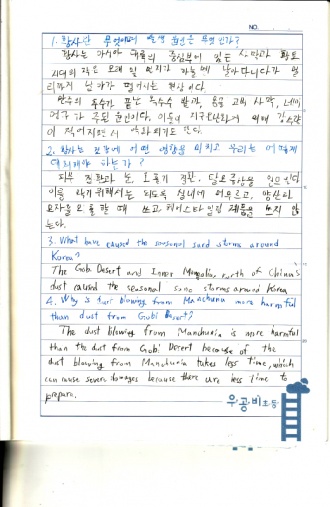 NO.
1. 황사란 무엇이며 발생 원인은 무엇인가?
황사는 아시아 대륙의 중심부에 있는 사막과 황토
지대의 작은 모래 및 먼지가 하늘에 날아다니다가 멀
리까지 날아가 떨어지는 현상이다.
만주의 옥수가 끝난 옥수수 밭과, 몽골 고비 사막, 네이
멍구가 주된 원인이다. 이동이 지구온난화에 의해 강수량
이 적어지면서 악화되기도 한다.
2. 황사는 건강에 어떤 영향을 미치고 우리는 어떻게
대처해야 하는가?
피부 질환과 눈, 호흡기 질환, 알르
이를 막기위해서는 되도록 실내에 머무르고, 양산과
모자를 외출할 때 쓰고, 헤어스타일링 제품을 쓰지 않
는다.
3. What have caused the seasonal sand storms around
Korea?
The Gobi Desert and Inner Mongolia, north of China's
dust caused the seasonal sand storms around Korea
4. Why is dust blowing from Manchuria more harmful
than dust from Gobi Desert?
The dust blowing from Manchuria is more harmful
than the dust from Gobi Desert because of the
dust blowing from Manchuria takes less time, which
can cause severe damages because there are less time to
prepare.
우공비초등